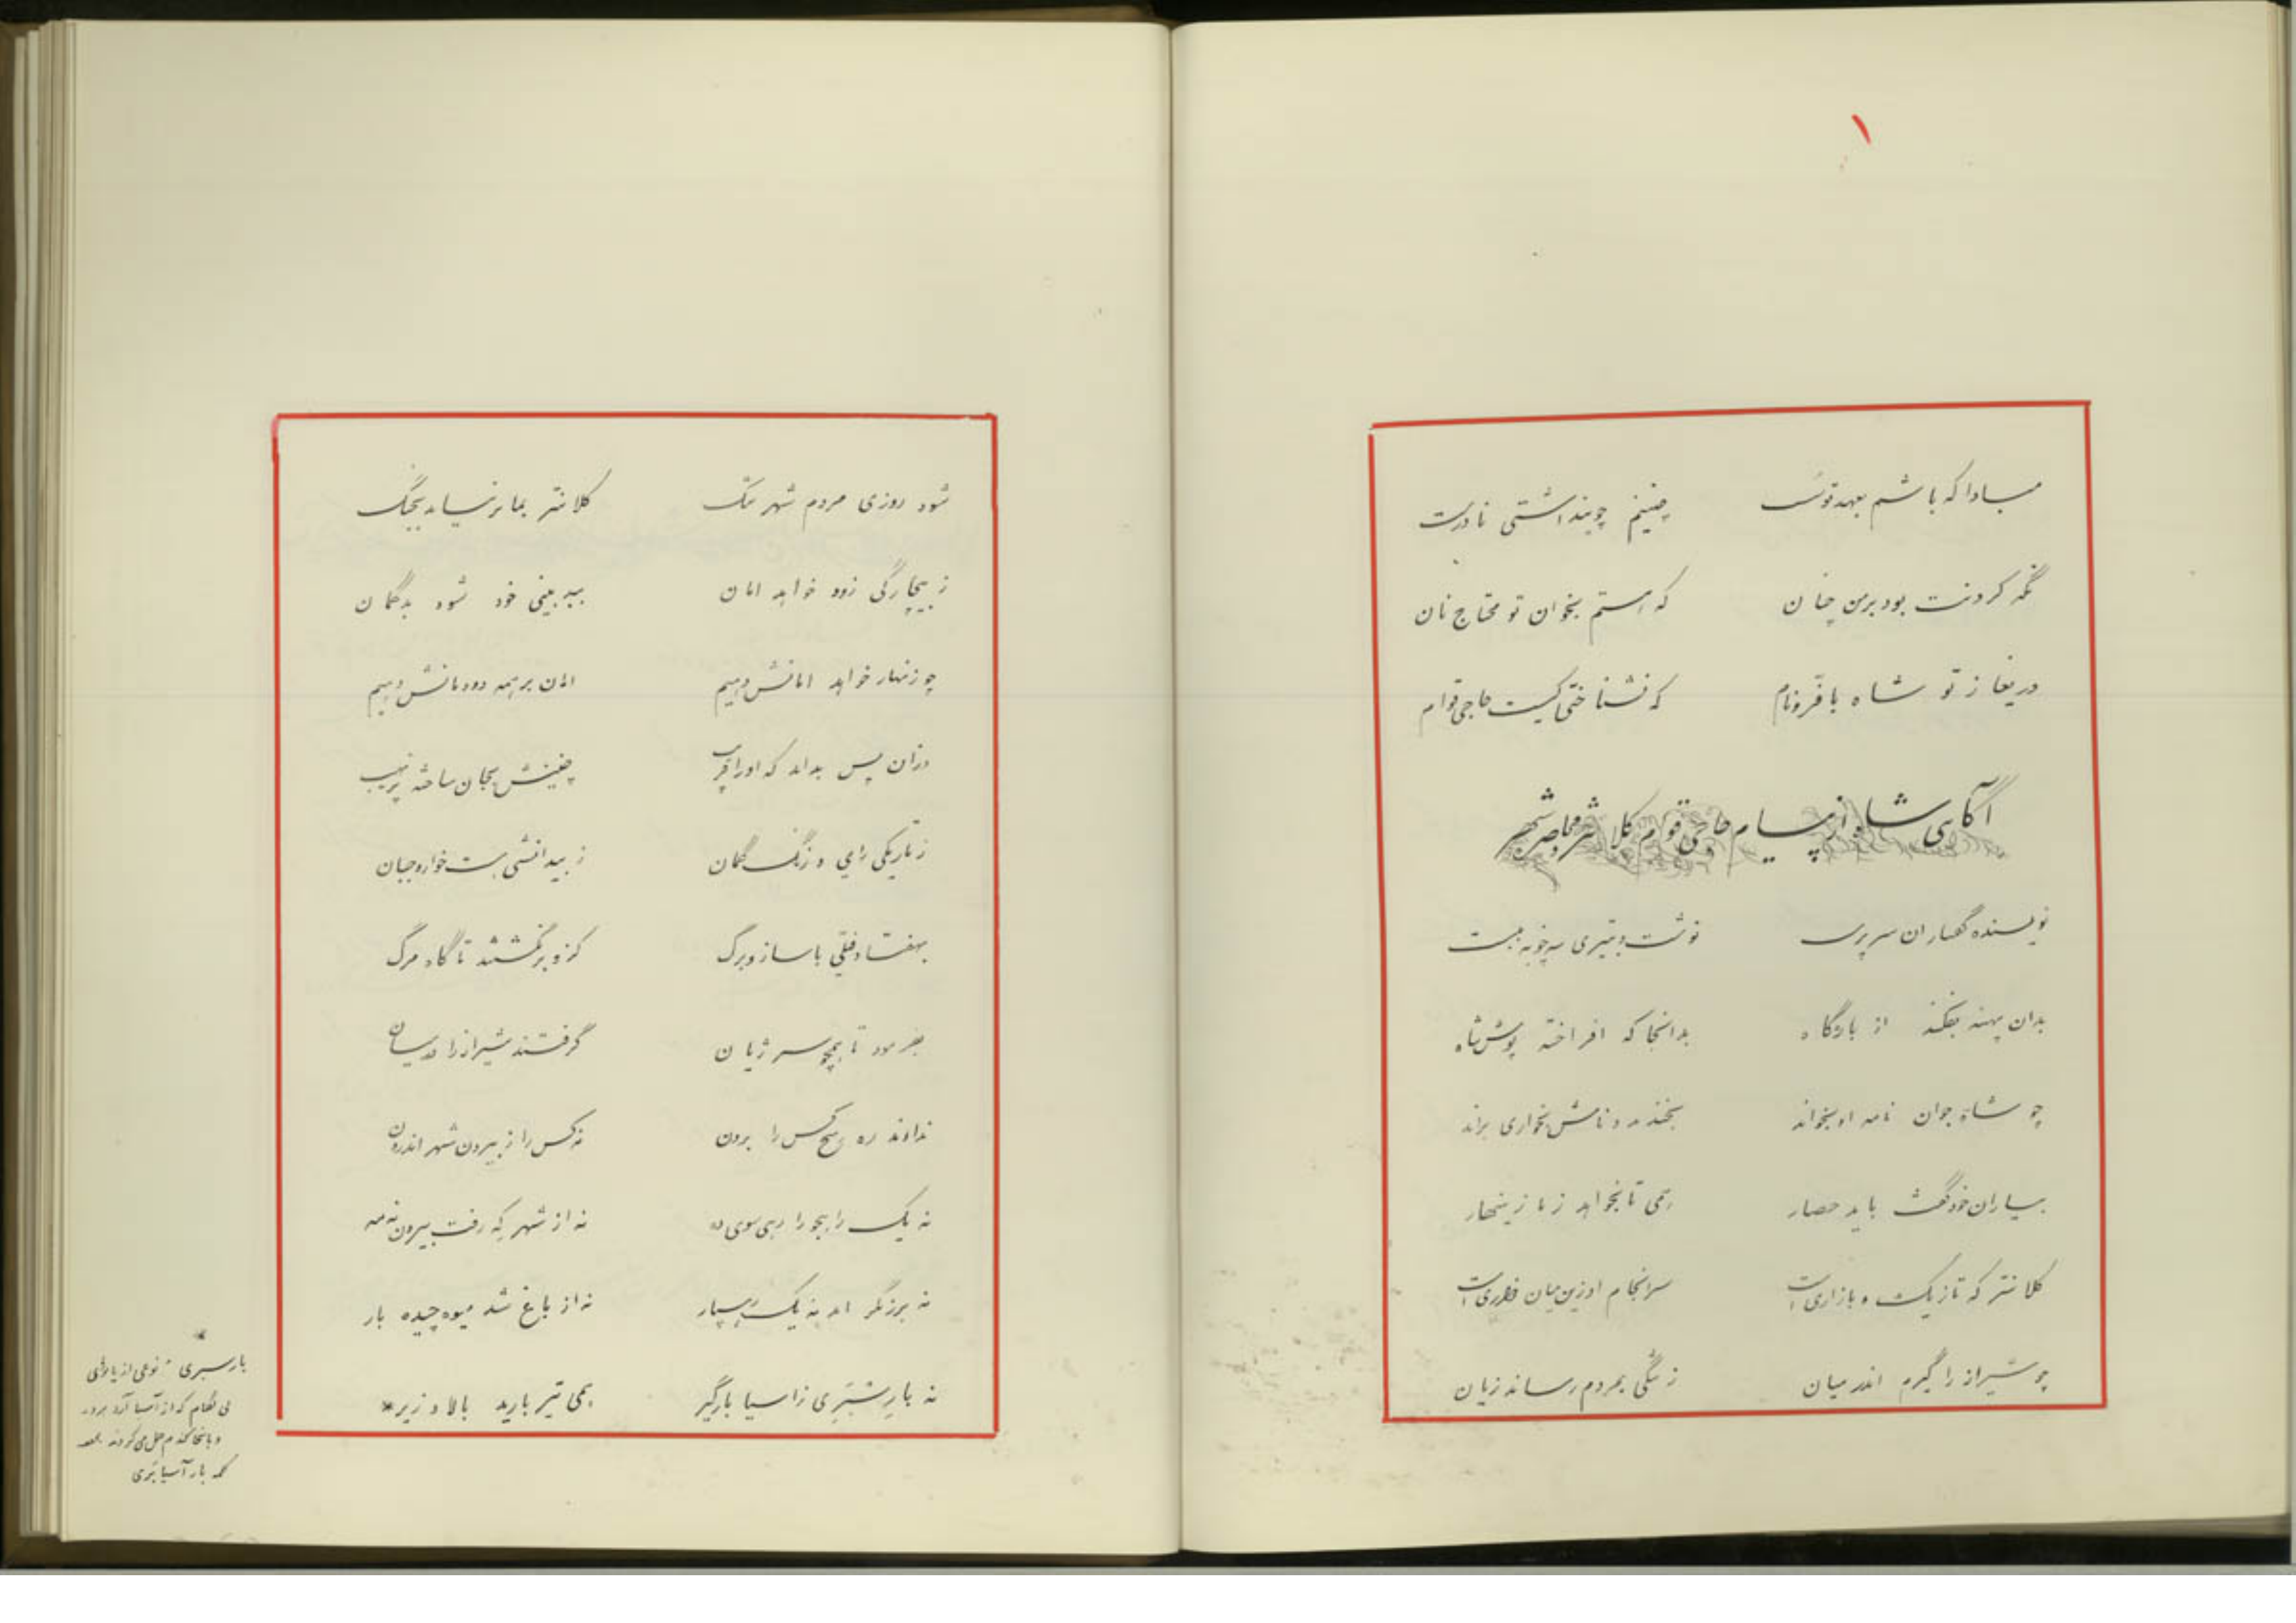 ۱
مبادا که باشم بعهد تو سست چنینم چو پنداشتی نادرست
نگه کردنت بود بر من چنان که هستم بخوان تو محتاج نان
دریغا ز تو شاه با فرّ و نام که نشناختی کیست حاجی قوام
آگاهی شاه از پیام حاجی قوام کلانتر و محاصره شهر
نویسنده گفتار آن سرپرست نوشت و بتیری سه چوبه ببست
بدان پهنه بفکند از بارگاه بدانجا که افراخته پوش شاه
چو شاه جوان نامه او بخواند بخندید و نامش بخواری براند
بیاران خود گفت باید حصار همی تا بخواهد ز ما زینهار
کلانتر که تازیک و بازاری است سرانجام او زین میان خواری است
چو شیراز را گیرم اندر میان ز تنگی بمردم رساند زیان
شود روزی مردم شهر تنگ کلانتر بما بر نیاید بجنگ
ز بیچارگی زود خواهد امان ببد بینی خود شود بدگمان
چو زنهار خواهد امانش دهیم امان بر همه دودمانش دهیم
وزان پس بداند که او را فریب چنینش بجان ساخته پر نهیب
ز تاریکی رای و زنگ گمان ز بیدانشی هست خوار و جبان
بهفتاد فتلی با ساز و برگ کزو برنگشتند تا گاه مرگ
بفرمود تا همچو سر ژیان گرفتند شیراز را در میان
ندادند ره هیچ کس را برون نه کس را ز بیرون شهر اندرون
نه یک راهجو را رهی سوی ده نه از شهر که رفت بیرون نه مه
نه برزگر اند نه یک رهسپار نه از باغ شد میوه چیده بار
نه بار شبتری ز اسیا بارگیر همی تیر بارید بالا و زیر*
*
بار سبری نوعی از یابوی
بی لگام که از آسیا آرد برد
و بانجا گندم حمل می کردند
کمه بار آسیا بری